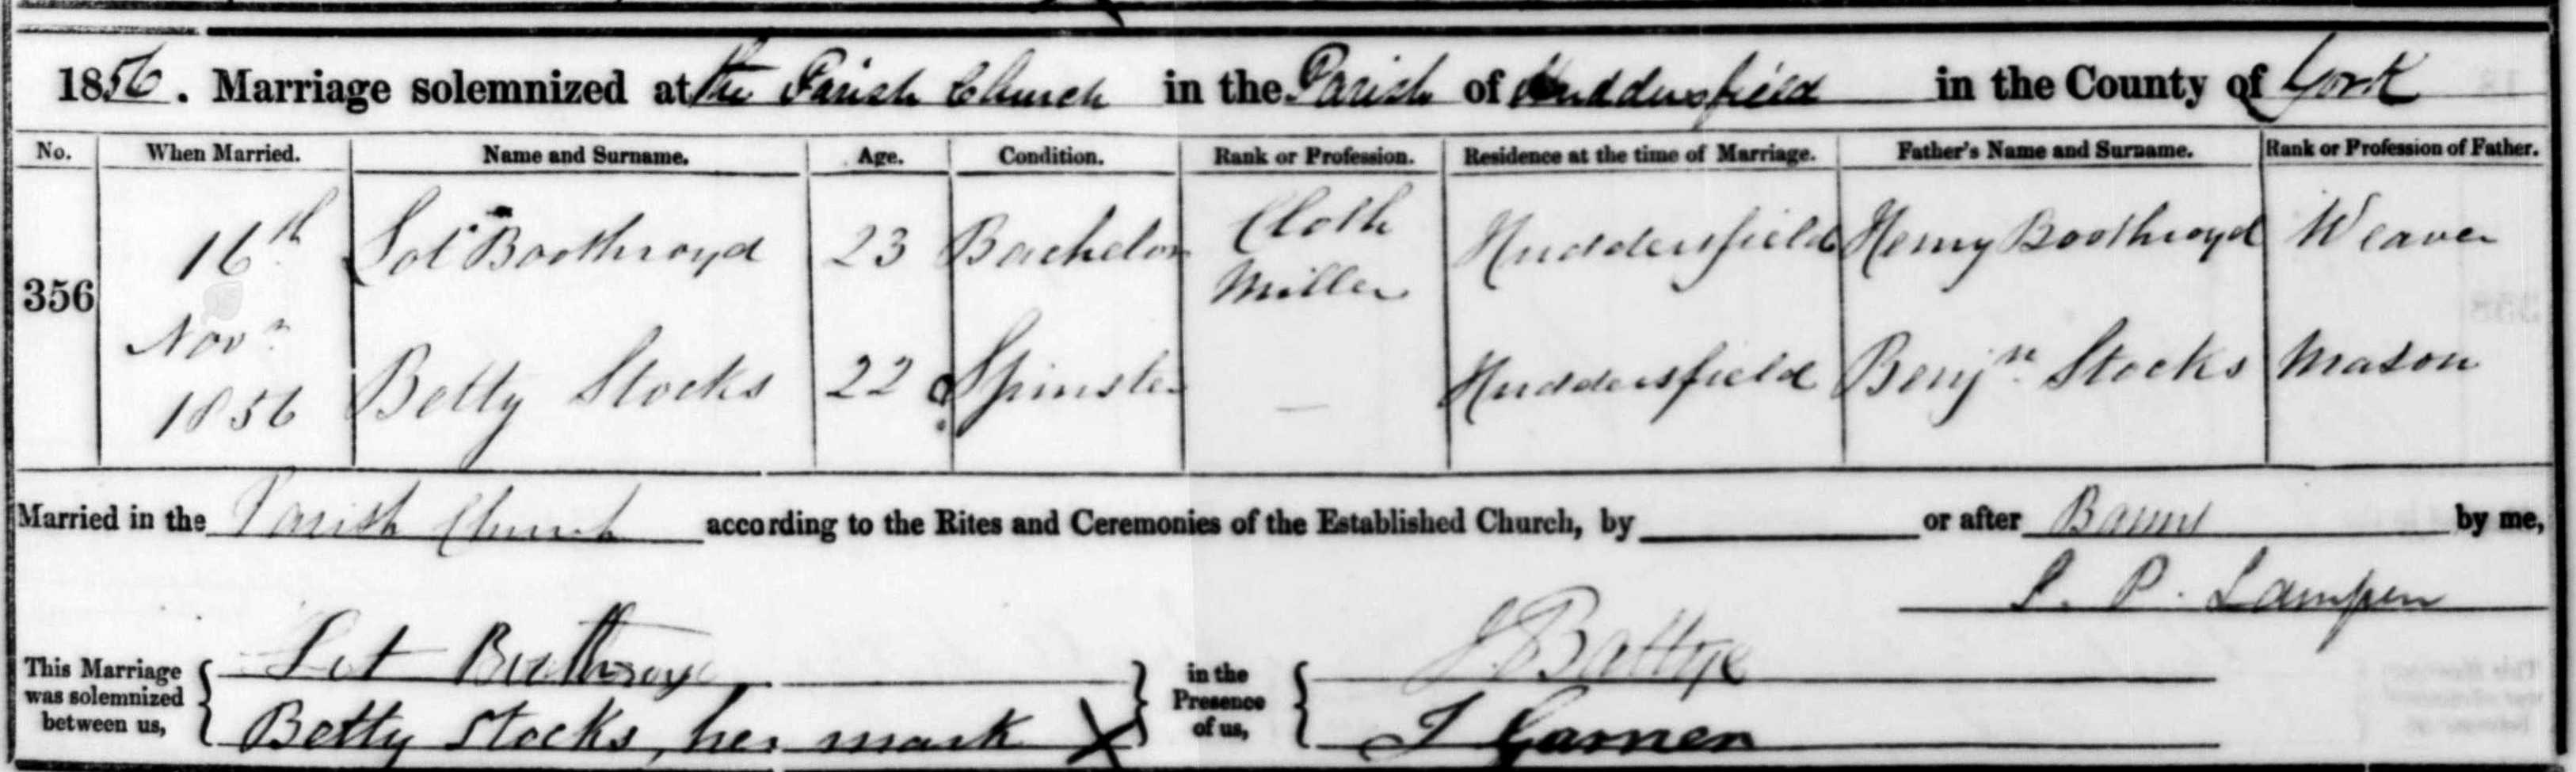 1856. Marriage solemnized at the Parish Church in the Parish of Huddersfield in the County of York
No. When Married. Name and Surname. Age. Condition. Rank or Profession. Residence at the time of Marriage. Father's Name and Surname. Rank or Profession of Father.
356 16th Novr 1856 Lot Boothroyd 23 Bachelor Cloth Miller Huddersfield Henry Boothroyd Weaver
Betty Stocks 22 Spinster — Huddersfield Benjn Stocks Mason
Married in the Parish Church according to the Rites and Ceremonies of the Established Church, by or after Banns by me,
P. Lampen
This Marriage was solemnized between us, Lot in the Presence of us, J Battye
Betty Stocks, her mark X